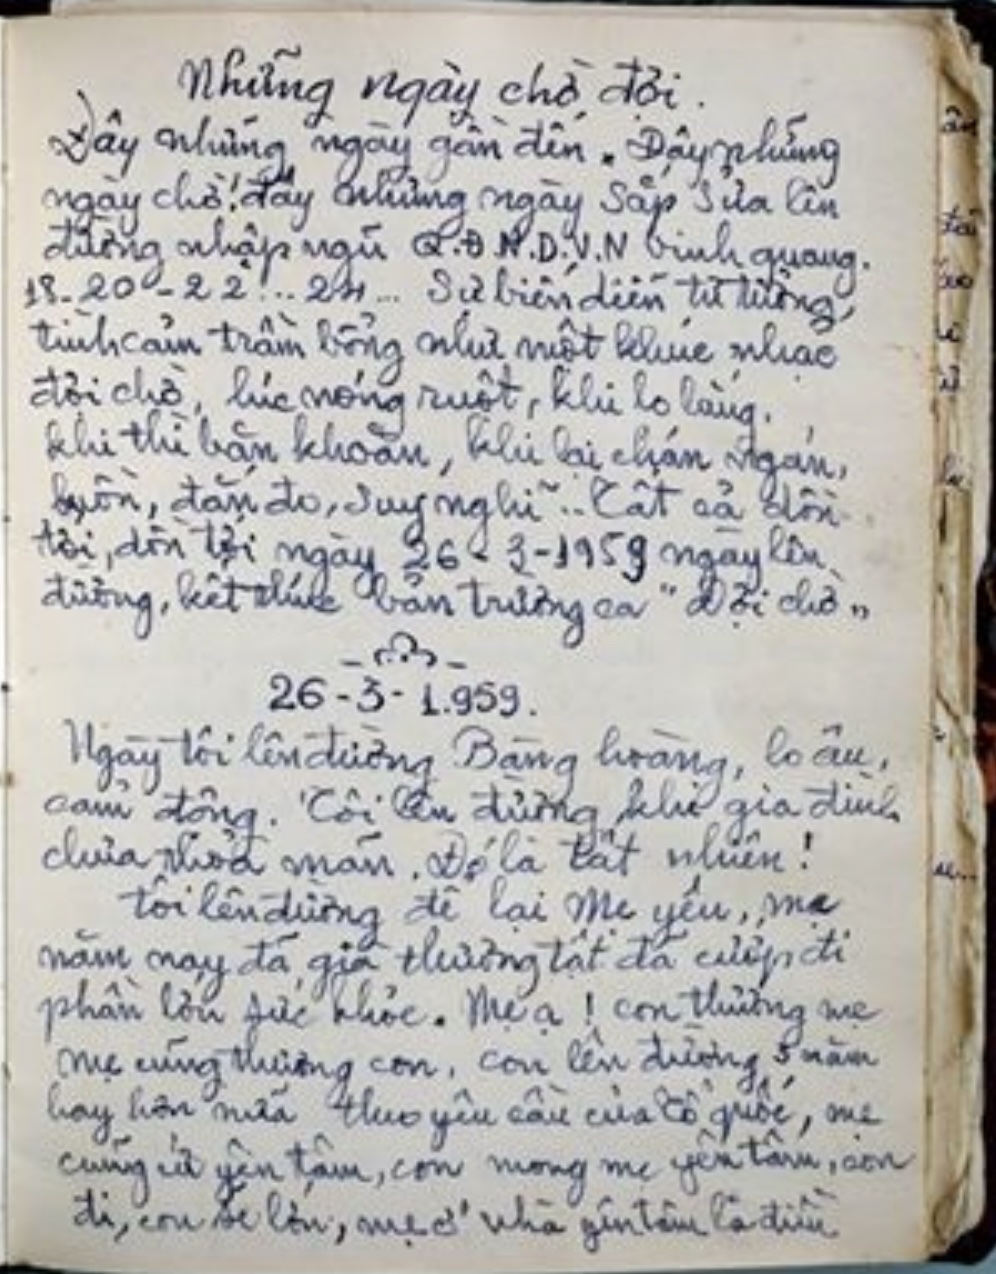 Những ngày chờ đợi.
Đây những ngày gần đến. Đây những
ngày chờ! đây những ngày sắp sửa lên
đường nhập ngũ Q.Đ.N.D.V.N vinh quang.
18-20-22...24... Sự biến diễn tư tưởng,
tình cảm trầm bổng như một khúc nhạc
đợi chờ, lúc nóng ruột, khi lo lắng,
khi thì băn khoăn, khi lại chán ngán,
buồn, đắn đo, suy nghĩ... Tất cả dồn
tới, dồn tới ngày 26-3-1959 ngày lên
đường, kết thúc bản trường ca "Đợi chờ"
26-3-1.959.
Ngày tôi lên đường Bàng hoàng, lo âu,
cảm động. Tôi lên đường khi gia đình
chưa thỏa mãn. Đó là tất nhiên!
Tôi lên đường để lại Mẹ yếu, mẹ
năm nay đã già thương tật đã cướp đi
phần lớn sức khỏe. Mẹ ạ! con thương mẹ
mẹ cũng thương con, con lên đường 3 năm
hay hơn nữa theo yêu cầu của Tổ quốc, mẹ
cứ yên tâm, con mong mẹ yên tâm, con
đi, con sẽ lớn, mẹ ở nhà yên tâm là điều